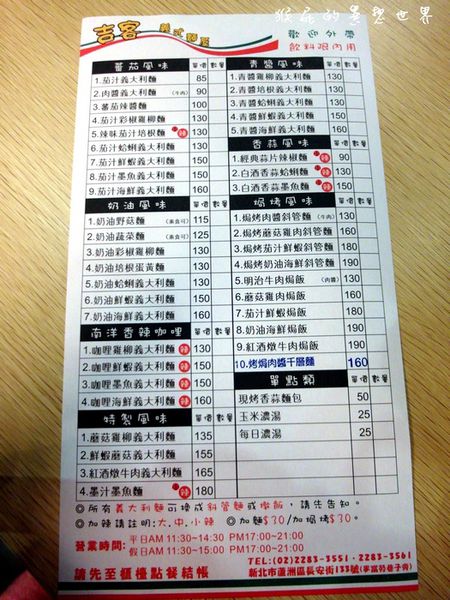 猴屁的異想世界
吉客 義式麵屋
歡迎外帶
飲料限內用
蕃茄風味 單價 數量
1.茄汁義大利麵 85
2.肉醬義大利麵 (牛肉) 90
3.蕃茄辣醬麵 100
4.茄汁彩椒雞柳麵 130
5.辣味茄汁培根麵 辣 130
6.茄汁蛤蜊義大利麵 130
7.茄汁鮮蝦義大利麵 150
8.茄汁墨魚義大利麵 150
9.茄汁海鮮義大利麵 160
奶油風味 單價 數量
1.奶油野菇麵 (素食可) 115
2.奶油蔬菜麵 (素食可) 125
3.奶油彩椒雞柳麵 130
4.奶油培根蛋黃麵 130
5.奶油蛤蜊義大利麵 130
6.奶油鮮蝦義大利麵 150
7.奶油海鮮義大利麵 160
南洋香辣咖哩 單價 數量
1.咖哩雞柳義大利麵 辣 130
2.咖哩鮮蝦義大利麵 辣 150
3.咖哩墨魚義大利麵 辣 150
4.咖哩海鮮義大利麵 辣 160
特製風味 單價 數量
1.蘑菇雞柳義大利麵 135
2.鮮蝦蘑菇義大利麵 155
3.紅酒燉牛肉義大利麵 165
4.墨汁墨魚麵 辣 180
青醬風味 單價 數量
1.青醬雞柳義大利麵 130
2.青醬培根義大利麵 130
3.青醬蛤蜊義大利麵 130
4.青醬鮮蝦義大利麵 150
5.青醬海鮮義大利麵 160
香蒜風味 單價 數量
1.經典蒜片辣椒麵 辣 90
2.白酒香蒜蛤蜊麵 辣 130
3.白酒香蒜墨魚麵 辣 150
焗烤風味 單價 數量
1.焗烤肉醬斜管麵 (牛肉) 130
2.焗烤蘑菇雞肉斜管麵 130
3.焗烤茄汁鮮蝦斜管麵 150
4.焗烤奶油海鮮斜管麵 190
5.明治牛肉焗飯 (肉醬) 130
6.蘑菇雞肉焗飯 160
7.茄汁鮮蝦焗飯 190
8.奶油海鮮焗飯 190
9.紅酒燉牛肉焗飯 190
10.烤焗肉醬千層麵 160
單點類 單價 數量
現烤香蒜麵包 50
玉米濃湯 25
每日濃湯 25
◎所有義大利麵可換成斜管麵或燉飯，請先告知。
◎加辣請註明:大.中.小辣 ◎加麵$30/加焗烤$30。
營業時間: 平日AM 11:30~14:30 PM17:00~21:00
假日AM 11:30~15:00 PM17:00~21:00
請先至櫃檯點餐結帳
TEL:(02)2283-3551．2283-3561
新北市蘆洲區長安街133號(麥當勞巷子旁)